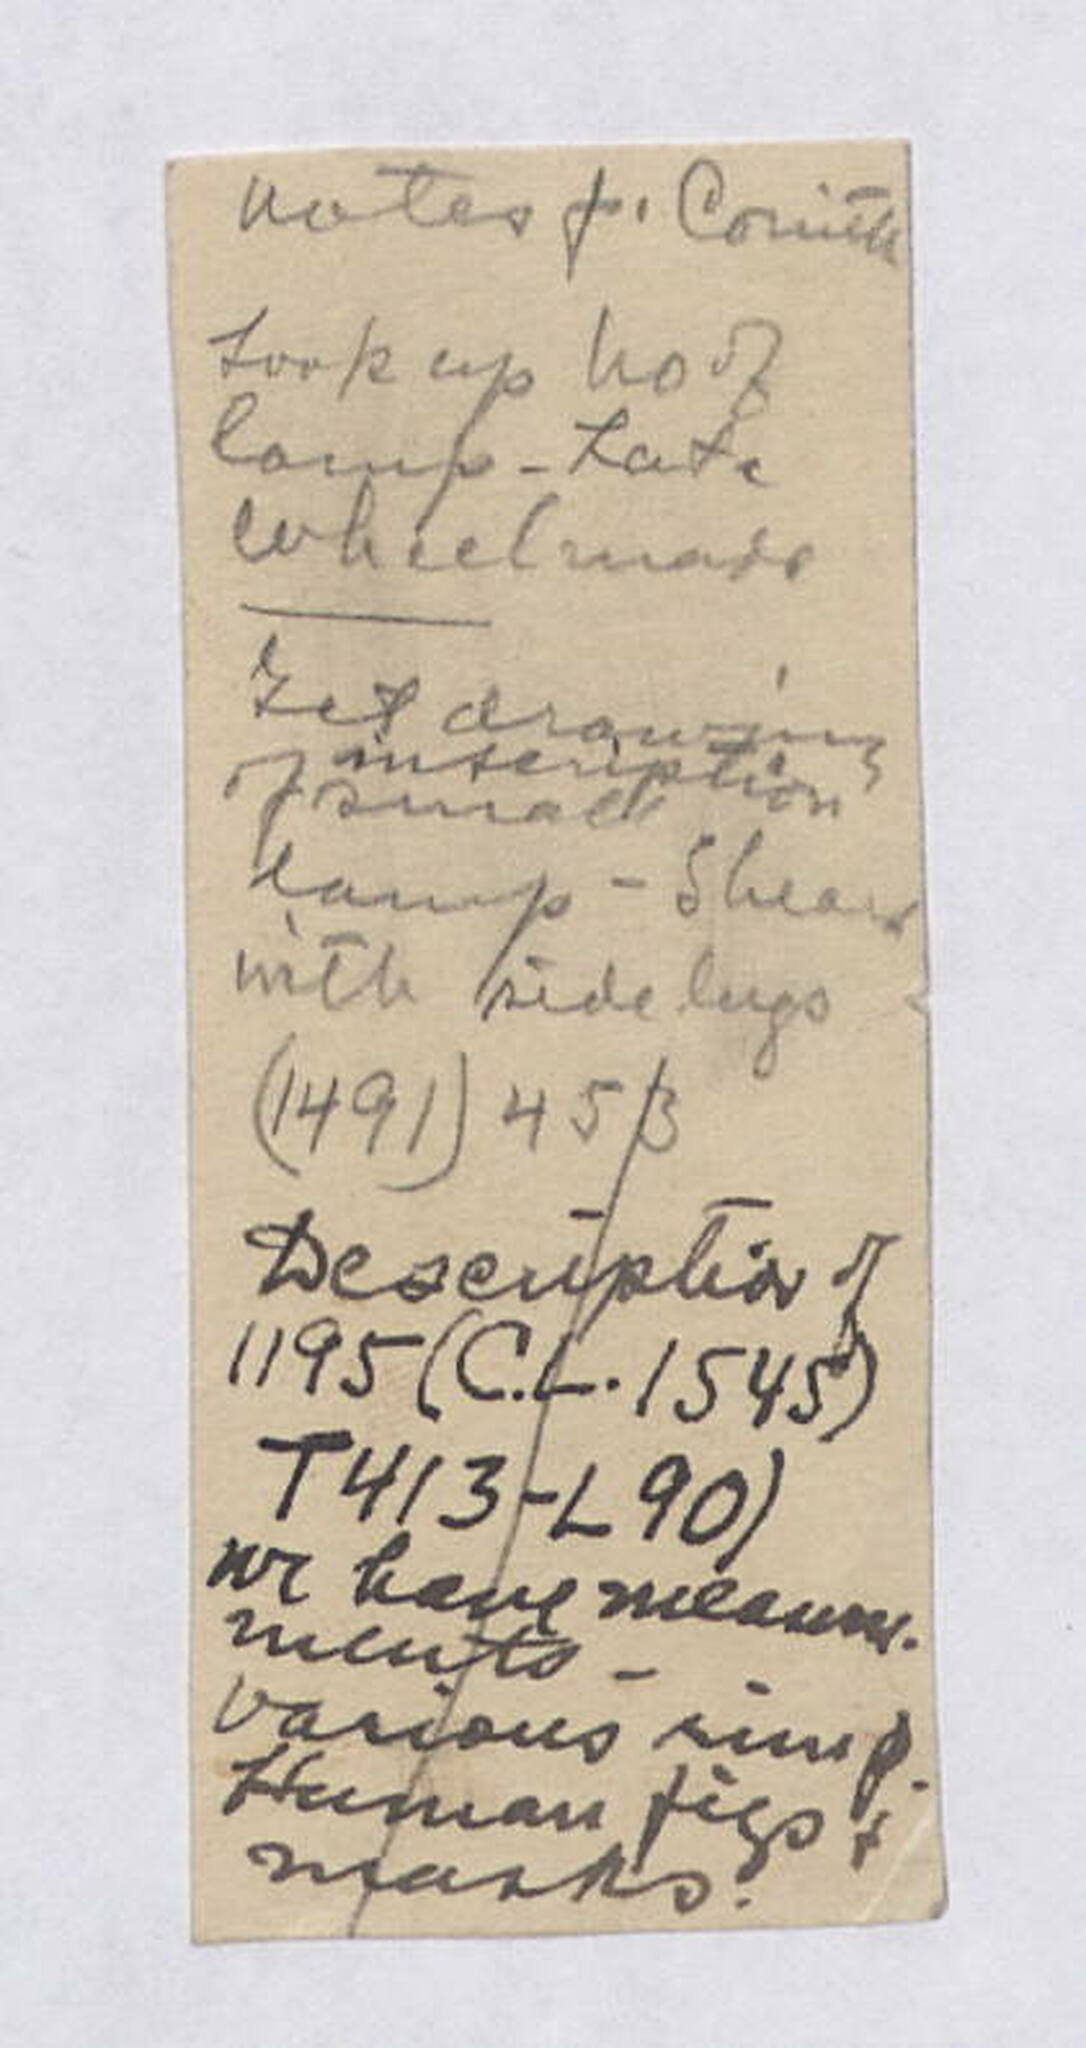 Notes f. Corinth
Look up No of
lamp - Late
Wheelmade
Get drawing
inscription
of small
lamp - Shear
with side lugs
(1491) 45 β
Description of
1195 (C.L. 1545)
T413-L90)
we have measure-
ments -
various simp.
Human figs +
masks.